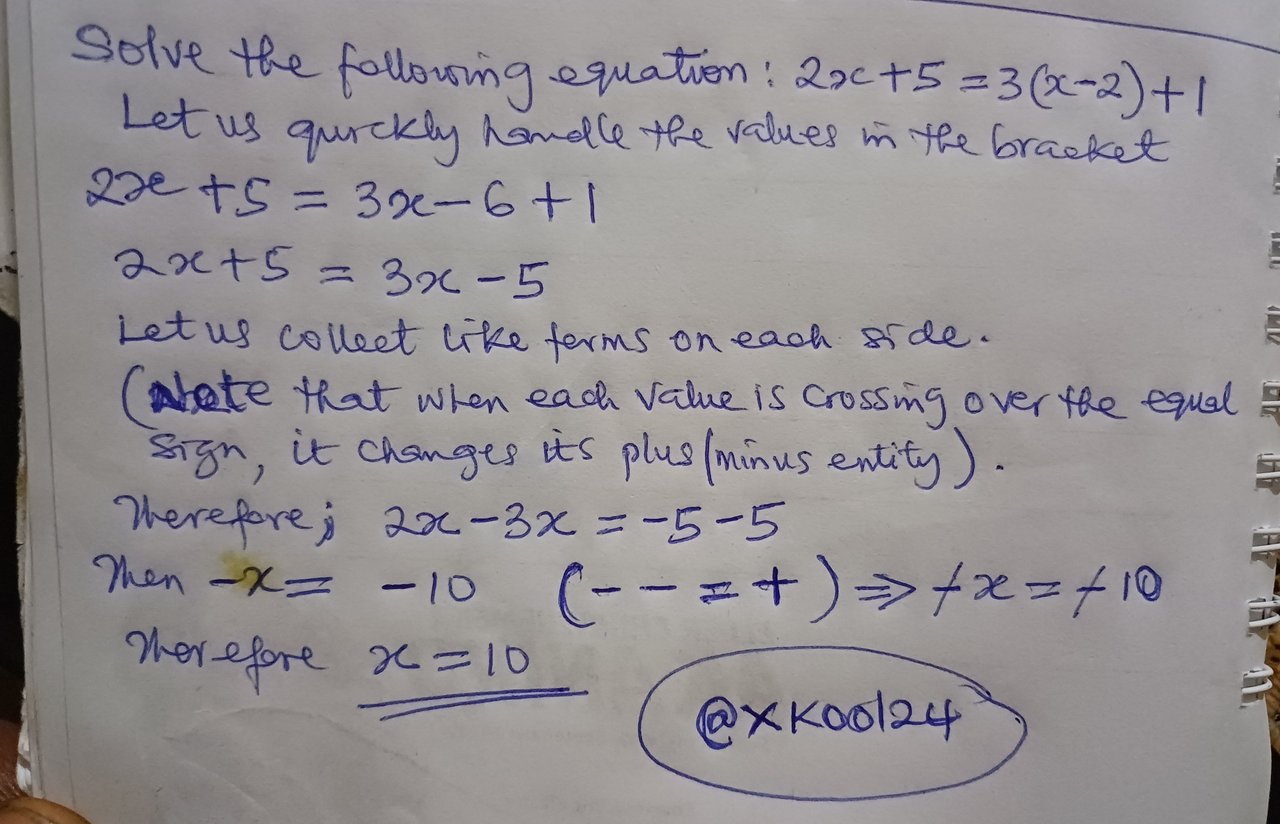 Solve the following equation: 2x+5=3(x-2)+1
Let us quickly handle the values in the bracket
2x+5 = 3x-6+1
2x+5 = 3x-5
Let us collect like terms on each side.
(Note that when each value is crossing over the equal
sign, it changes its plus/minus entity).
Therefore; 2x-3x = -5-5
Then -x = -10 (- - = +) ⇒ +x = +10
Therefore x=10
@XKool24